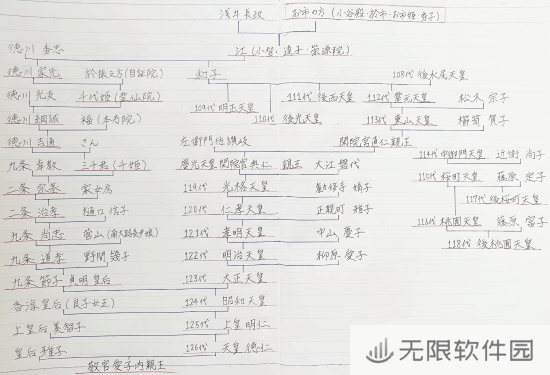 浅井長政 お市の方(小谷殿・於市・お市姫・秀子)
江(小督・達子・崇源院)
徳川 秀忠
徳川 家光 於振之方(自証院) 和子 108代 後水尾天皇
徳川 光友 千代姫(霊仙院) 111代 後西天皇 112代 霊元天皇 松木 宗子
109代 明正天皇 110代 後光天皇
徳川 綱誠 福(本寿院) 113代 東山天皇 櫛笥 賀子
徳川 吉通 さん 左衛門佐讃岐 閑院宮直仁親王
九条 幸教 三千君(千姫) 慶光天皇 閑院宮典仁 親王 大江 磐代 114代 中御門天皇 近衛 尚子
二条 宗基 119代 光格天皇 勧修寺 婧子 115代 桜町天皇 藤原 定子
117代 後桜町天皇
二条 治孝 樋口 信子 120代 仁孝天皇 正親町 雅子 116代 桃園天皇 藤原 富子
九条 尚忠 菅山 121代 孝明天皇 中山 慶子
118代 後桃園天皇
九条 道孝 野間 幾子 122代 明治天皇 柳原 愛子
九条 節子 貞明 皇后 123代 大正天皇
香淳皇后(良子女王) 124代 昭和天皇
上皇后 美智子 125代 上皇 明仁
皇后 雅子 126代 天皇 徳仁
敬宮愛子内親王
无限软件园